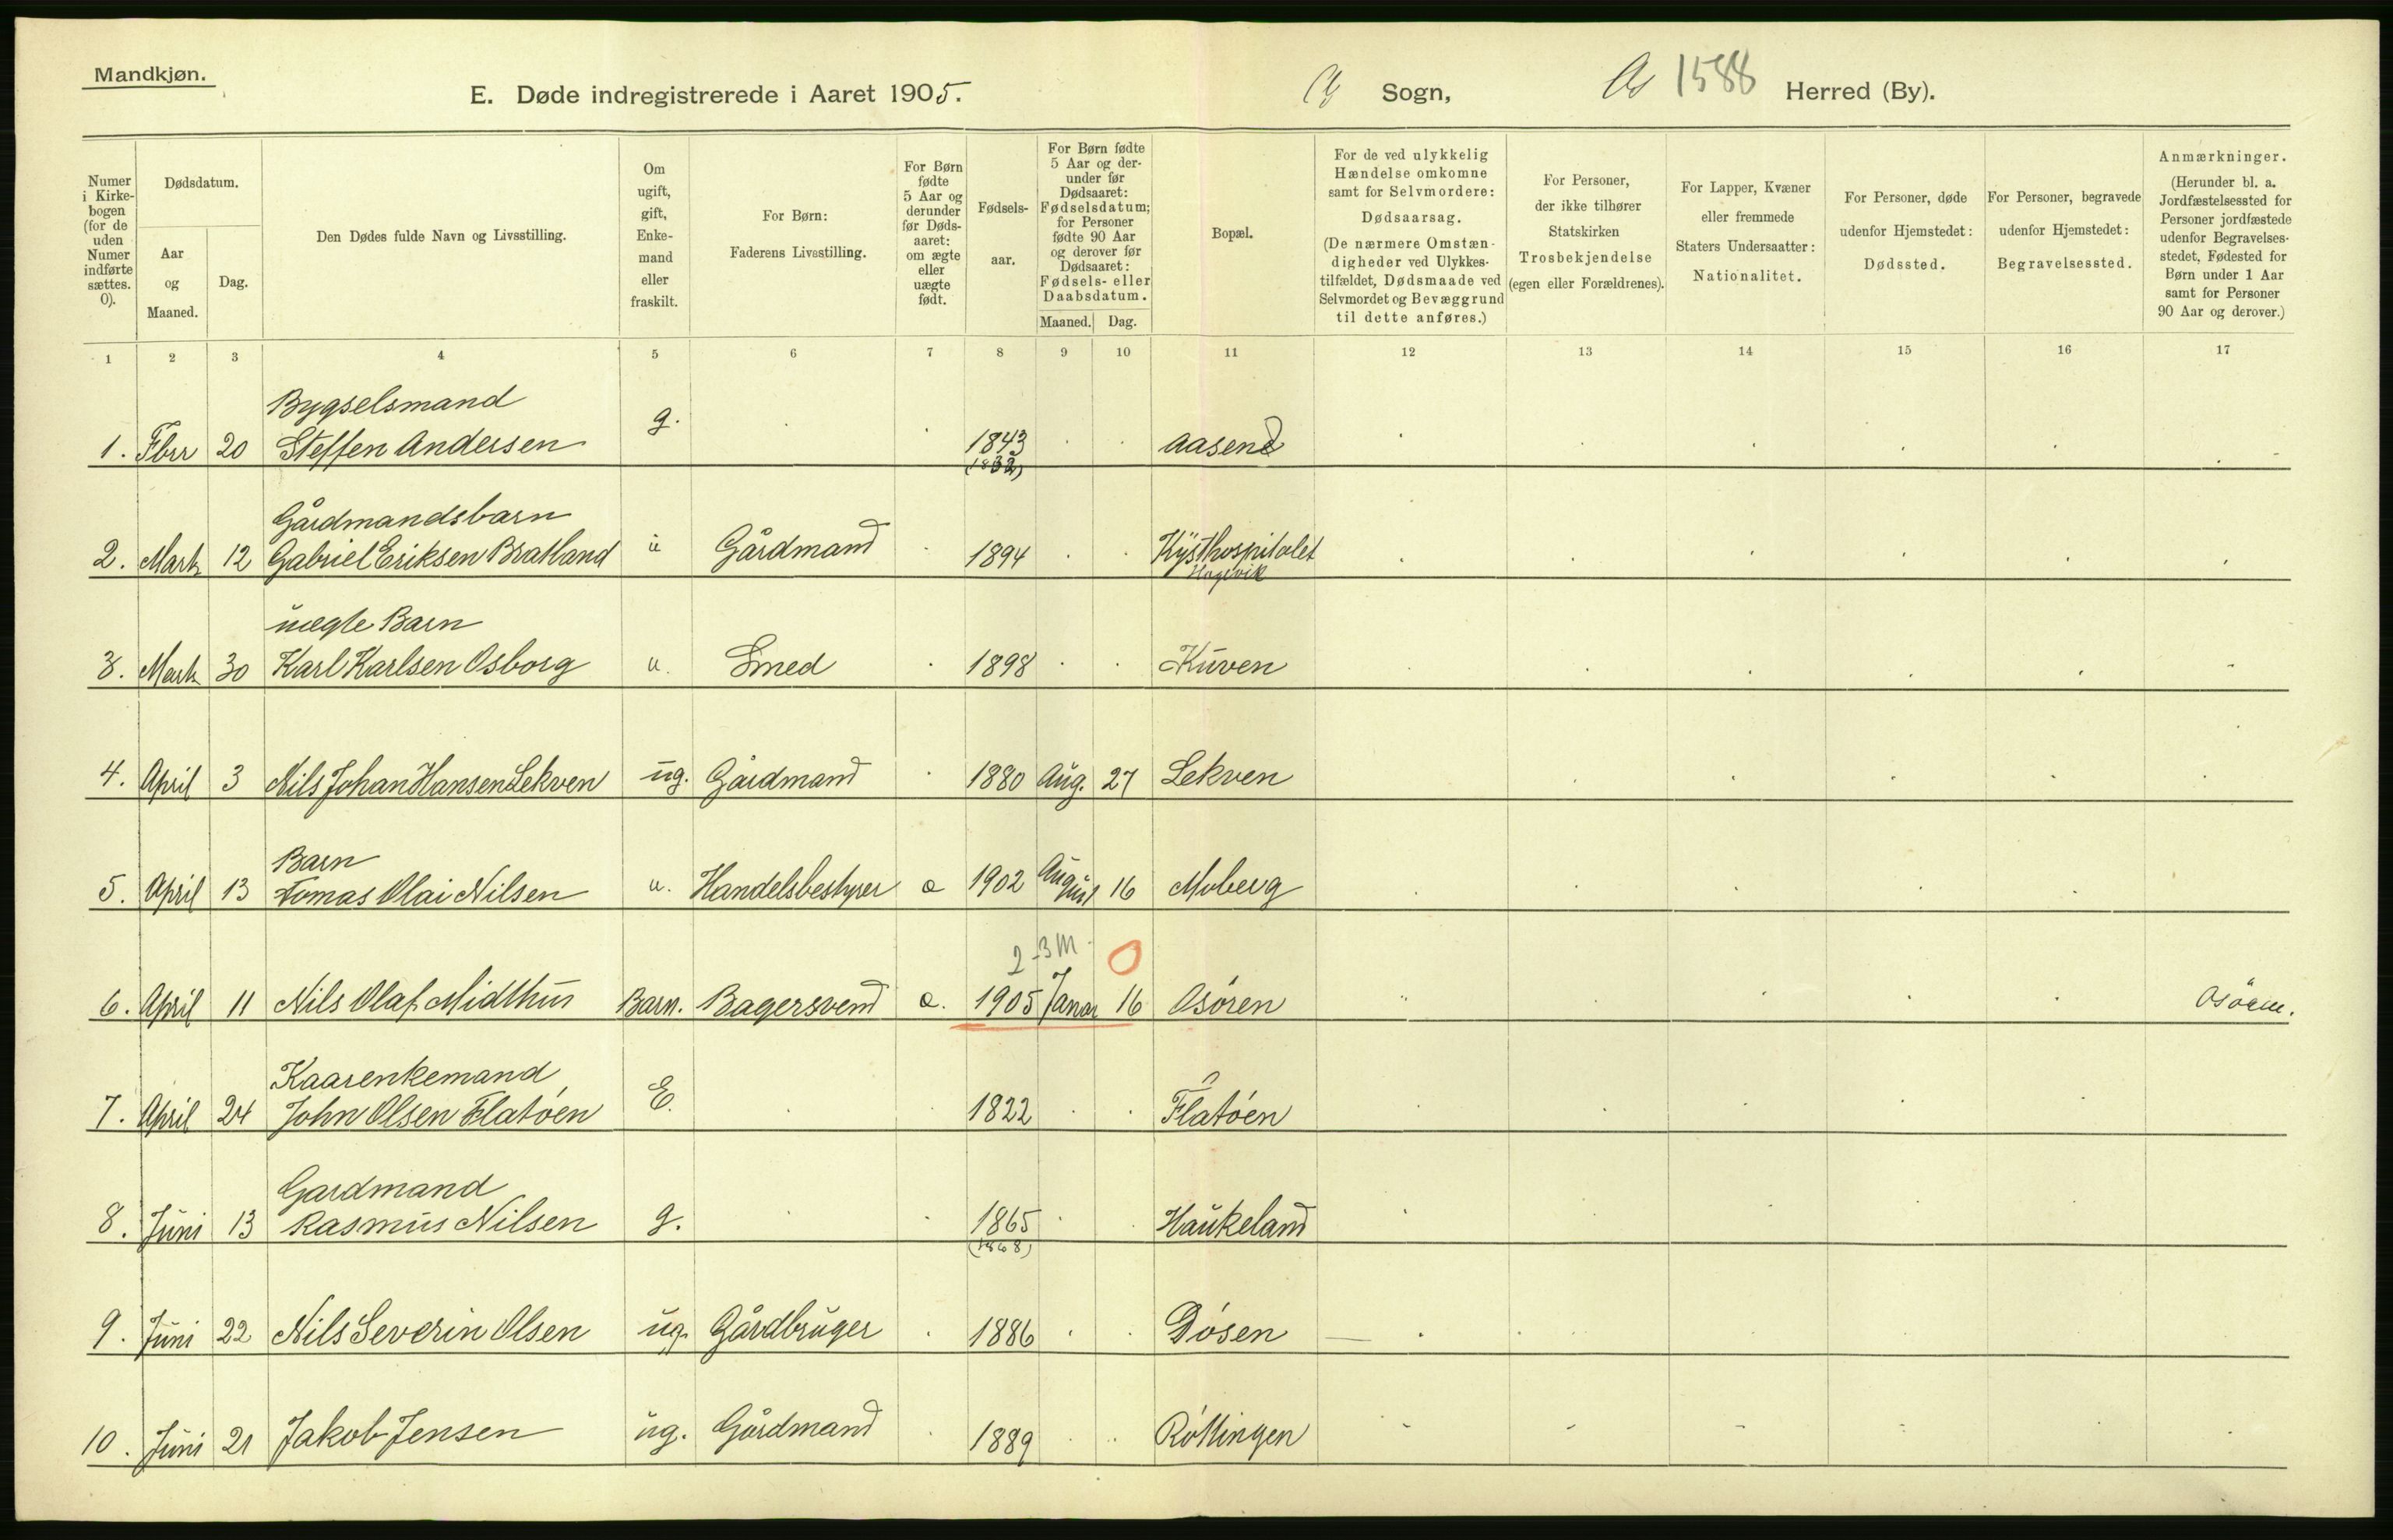 Mandkjøn.
E. Døde indregistrerede i Aaret 1905.
Os Sogn,
Os 1588 Herred (By).
Numer i Kirke-bogen (for de uden Numer indførte sættes. 0).
Dødsdatum.
Aar og Maaned.
Dag.
Den Dødes fulde Navn og Livsstilling.
Om ugift, gift, Enke-mand eller fraskilt.
For Børn: Faderens Livsstilling.
For Børn fødte 5 Aar og derunder før Døds-aaret: om ægte eller uægte født.
Fødsels-aar.
For Børn fødte 5 Aar og der-under før Dødsaaret: Fødselsdatum; for Personer fødte 90 Aar og derover før Dødsaaret: Fødsels- eller Daabsdatum.
Maaned.
Dag.
Bopæl.
For de ved ulykkelig Hændelse omkomne samt for Selvmordere: Dødsaarsag. (De nærmere Omstæn-digheder ved Ulykkes-tilfældet, Dødsmaade ved Selvmordet og Bevæggrund til dette anføres.)
For Personer, der ikke tilhører Statskirken Trosbekjendelse (egen eller Forældrenes).
For Lapper, Kvæner eller fremmede Staters Undersaatter: Nationalitet.
For Personer, døde udenfor Hjemstedet: Dødssted.
For Personer, begravede udenfor Hjemstedet: Begravelsessted.
Anmærkninger. (Herunder bl. a. Jordfæstelsessted for Personer jordfæstede udenfor Begravelses-stedet, Fødested for Børn under 1 Aar samt for Personer 90 Aar og derover.)
1 2 3 4 5 6 7 8 9 10 11 12 13 14 15 16 17
Bygselsmand
1. Fbrr 20 Steffen Andersen g. 1843 Aasend
Gårdmandsbarn
2. Marts 12 Gabriel Eriksen Bratland u Gårdmand 1894 Kysthospitalet
Hagevik
uægte Barn
3. Marts 30 Karl Karlsen Osborg u. Smed 1898 Kuven
4. April 3 Nils Johan Hansen Lekven ug. Gårdmand 1880 Aug. 27 Lekven
Barn
5. April 13 Tomas Olai Nilsen u. Handelsbestyrer 1902 August 16 Moberg
2-3 M
6. April 11 Nils Olaf Midthus Barn. Bagersvend 1905 Januar 16 Osören Osören.
Kaarenkemand
7. April 24 John Olsen Flatöen E. 1822 Flatöen
Gardmand
8. Juni 13 Rasmus Nilsen g. 1865 Haukeland
(1868)
9. Juni 22 Nils Severin Olsen ug. Gårdbruger 1886 Dösen
10. Juni 21 Jakob Jensen ug. Gårdmand 1889 Röttingen